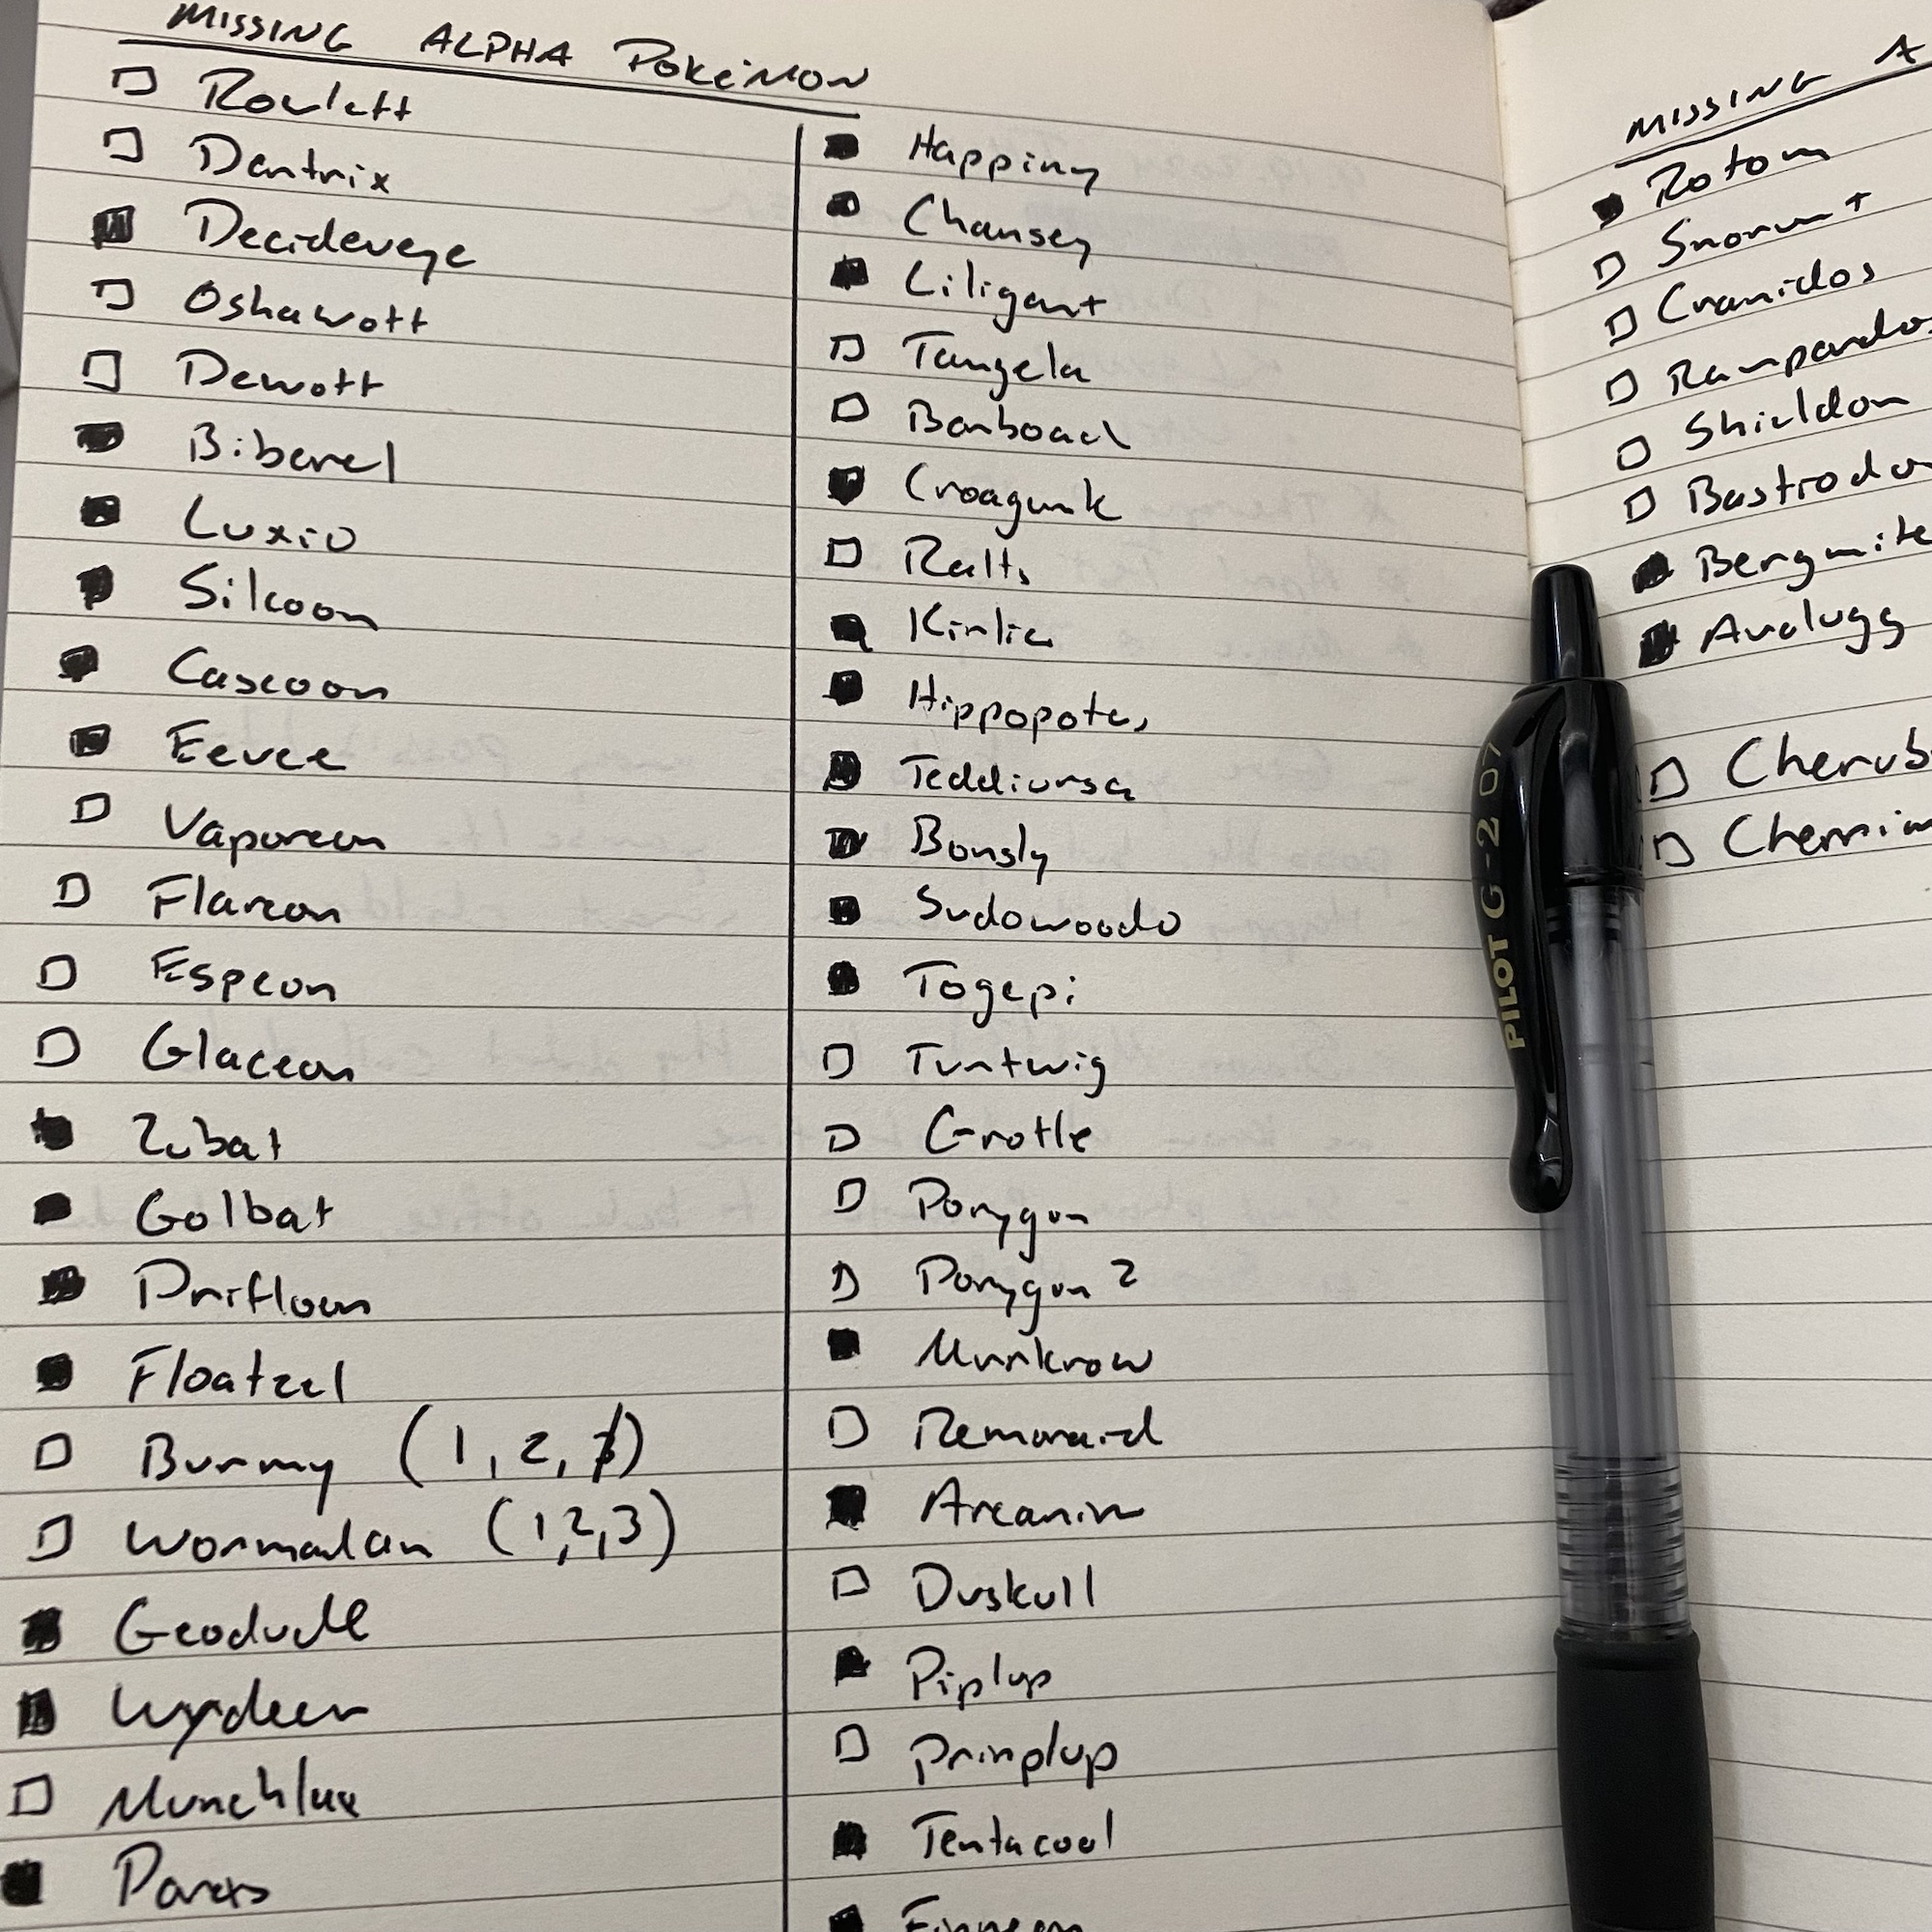 MISSING ALPHA POKéMON
Rowlett
Dentrix
Decideueye
Oshawott
Dewott
Biberel
Luxio
Silcoon
Cascoon
Eevee
Vaporeon
Flareon
Espeon
Glaceon
Zubat
Golbat
Drifloon
Floatzel
Burmy (1, 2, 3)
Wormadam (1,2,3)
Geodude
Wyrdeer
Munchlax
Paras
Happiny
Chansey
Liligant
Tangela
Barboach
Croagunk
Ralts
Kirlia
Hippopotas
Teddiursa
Bonsly
Sudowoodo
Togepi
Turtwig
Grotle
Porygon
Porygon 2
Murkrow
Remoraid
Arcanine
Duskull
Piplup
Prinplup
Tentacool
Finneon
MISSING A
Rotom
Snorunt
Cranidos
Rampardos
Shieldon
Bastiodo
Bergmite
Avalugg
Cherub
Cherrim
PILOT G-2 07